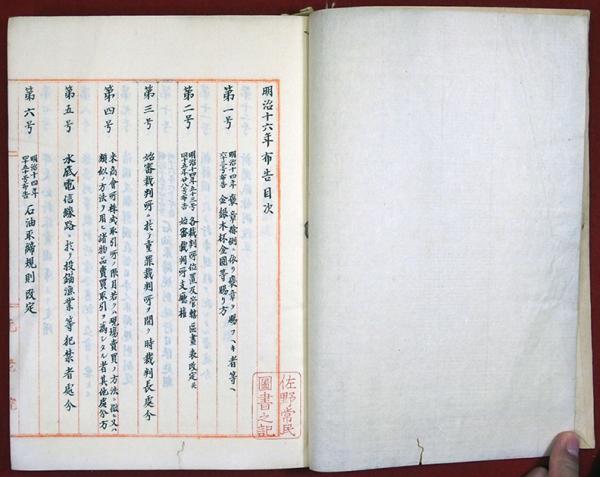 明治十六年布告目次
第一号 明治十四年六十三号布告 褒章條例ニ依リ褒章ヲ賜フヘキ者等ヘ金銀木杯金圓等賜リ方
第二号 明治十四年五十三号 各裁判所位置及管轄區畫表改定
始審裁判所支廳
第三号 始審裁判所ニ於テ重罪裁判所ヲ開ク時裁判長處分
第四号 米商會所株式取引所ノ限月若クハ現場賣買ノ方法ニ倣ヒ又ハ
類似ノ方法ヲ用ヒ諸物品賣買取引ヲ為シタル者其他處分方
第五号 水底電信線路ニ於テ投錨漁業等犯禁者處分
第六号 明治十四年 石油取締規則改定
佐野常民
圖書之記